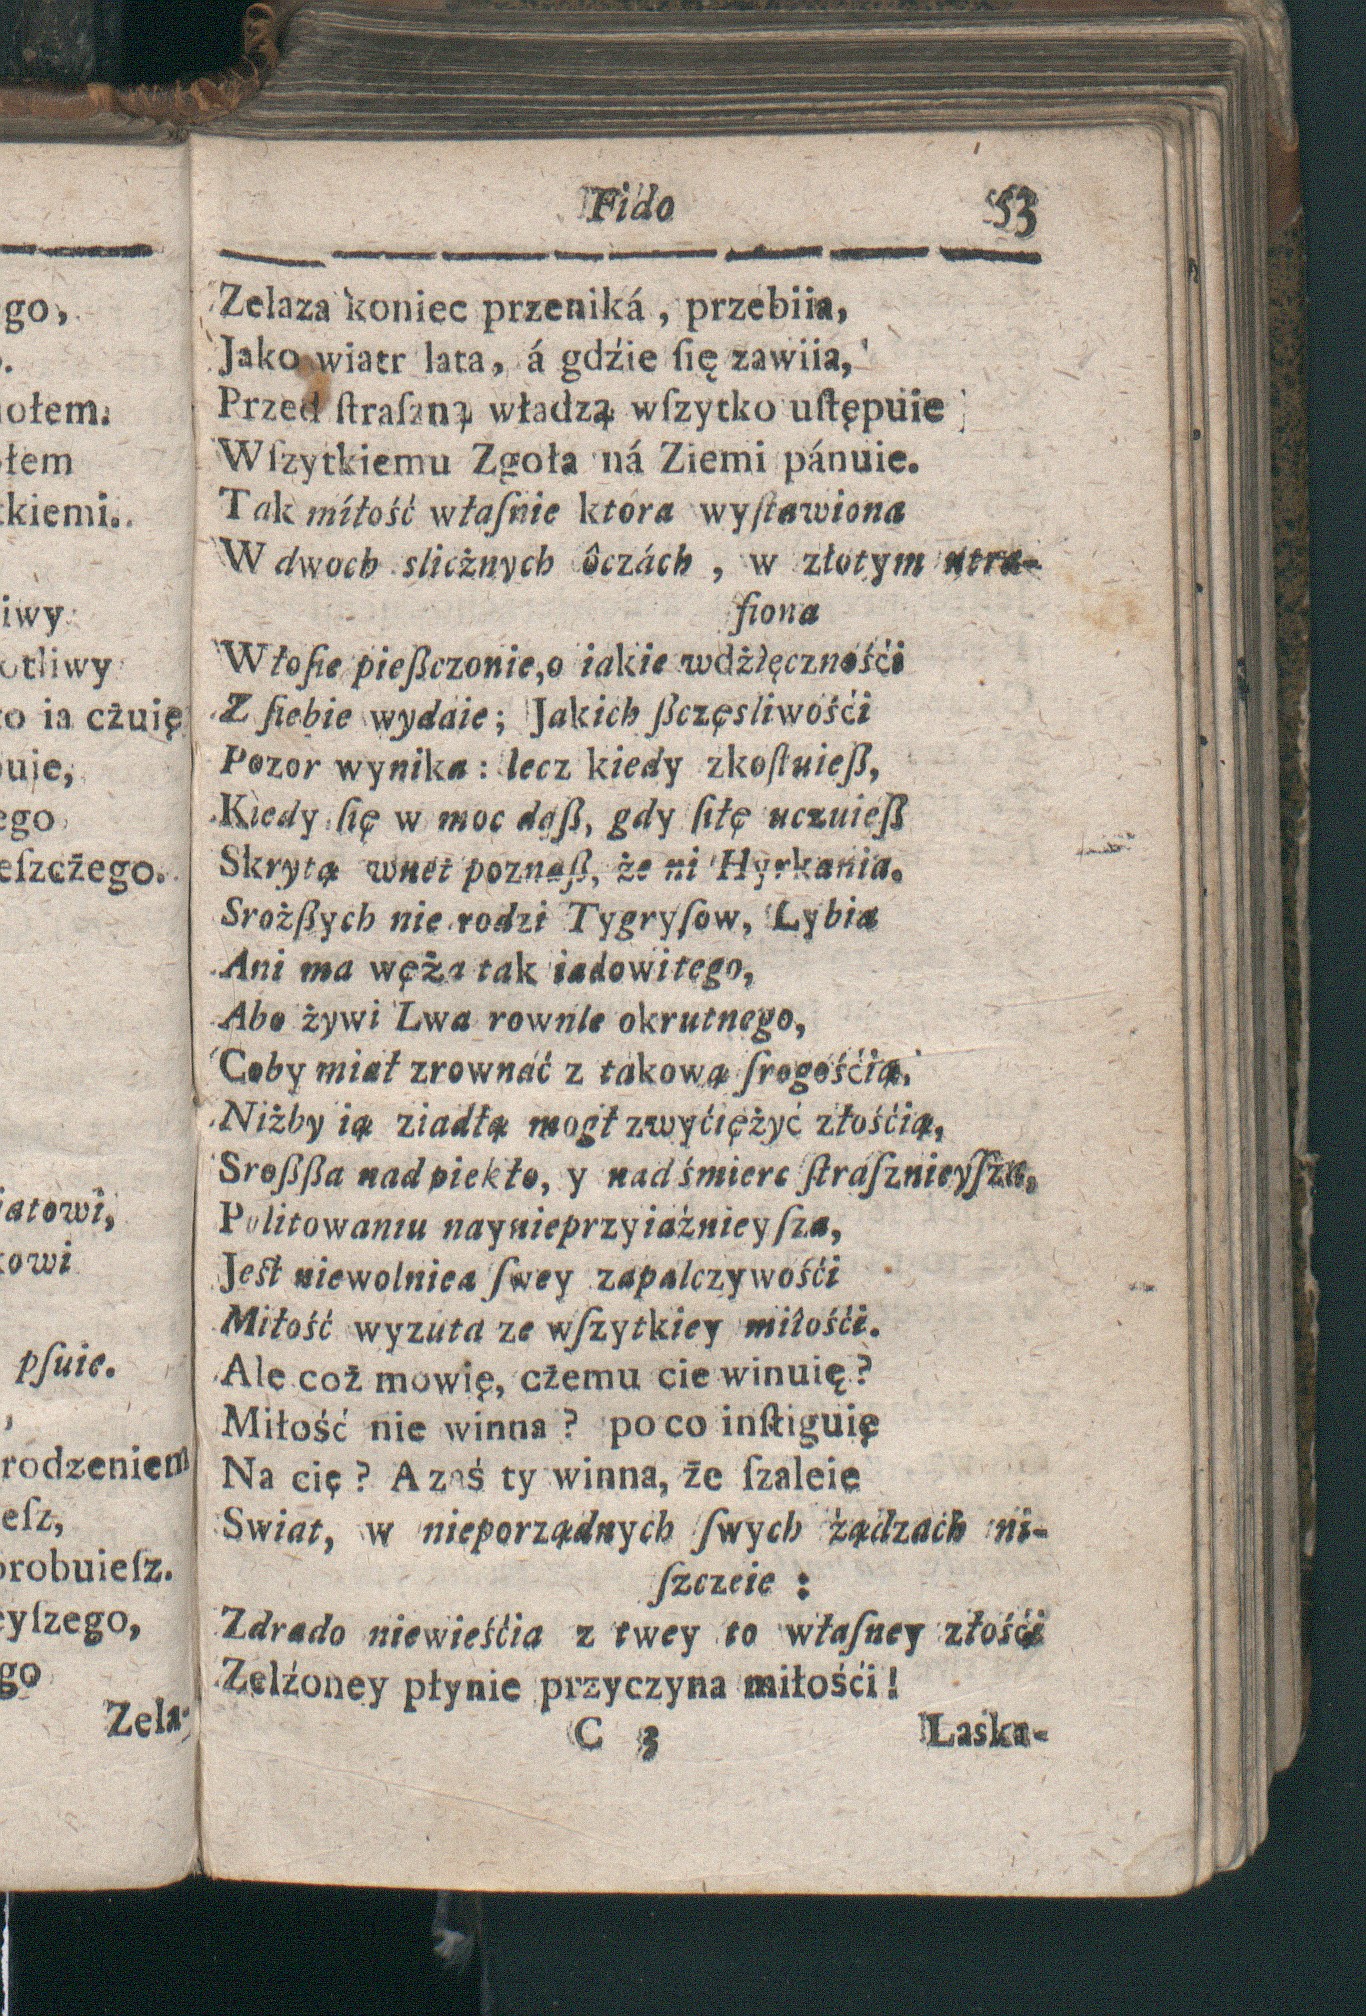 Fido 53
Zelaza koniec przeniká, przebiia,
Jako wiatr lata, á gdźie ſię zawiia,
Przed ſtraſzną władzą wſzytko uſtępuie
Wſzytkiemu Zgoła ná Ziemi pánuie.
Tak miłość właſnie ktora wyſtawiona
W dwoch slicżnych ôczách, w złotym utra-
fiona
Włoſie pießczonie, o iakie wdźięcznośći
Z ſiebie wydaie; Jakich ßczęsliwośći
Pozor wynika: lecz kiedy zkoſtuieß,
Kiedy ſię w moc daß, gdy ſiłę uczuieß
Skrytą wnet poznaß, że ni Hyrkania.
Srożßych nie rodzi Tygryſow, Lybia
Ani ma węża tak iadowitego,
Abo żywi Lwa rownie okrutnego,
Coby miał zrownać z takową ſrogośćią,
Niżby ią ziadłą mogł zwyćiężyć złośćią,
Sroßßa nad piekło, y nad śmierc ſtraſznieyſza,
Politowaniu naynieprzyiaźnieyſza,
Jeſt niewolnica ſwey zapalczywośći
Miłość wyzuta ze wſzytkiey miłośći.
Ale coż mowię, cżemu cie winuię?
Miłość nie winna? po co inſtiguię
Na cię? A zaś ty winna, że ſzaleie
Swiat, w nieporządnych ſwych żądzach ni-
ſzczeie:
Zdrado niewieśćia z twey to właſney złośći
Zelżoney płynie przyczyna miłośći!
C 3 Laska-
go,
ołem.
łem
kiemi.
iwy
otliwy
o ia cżuię
uje,
ego
eſzcżego.
iatowi,
kowi
pſuie.
rodzeniem
eſz,
probuieſz.
eyſzego,
go
Zela-